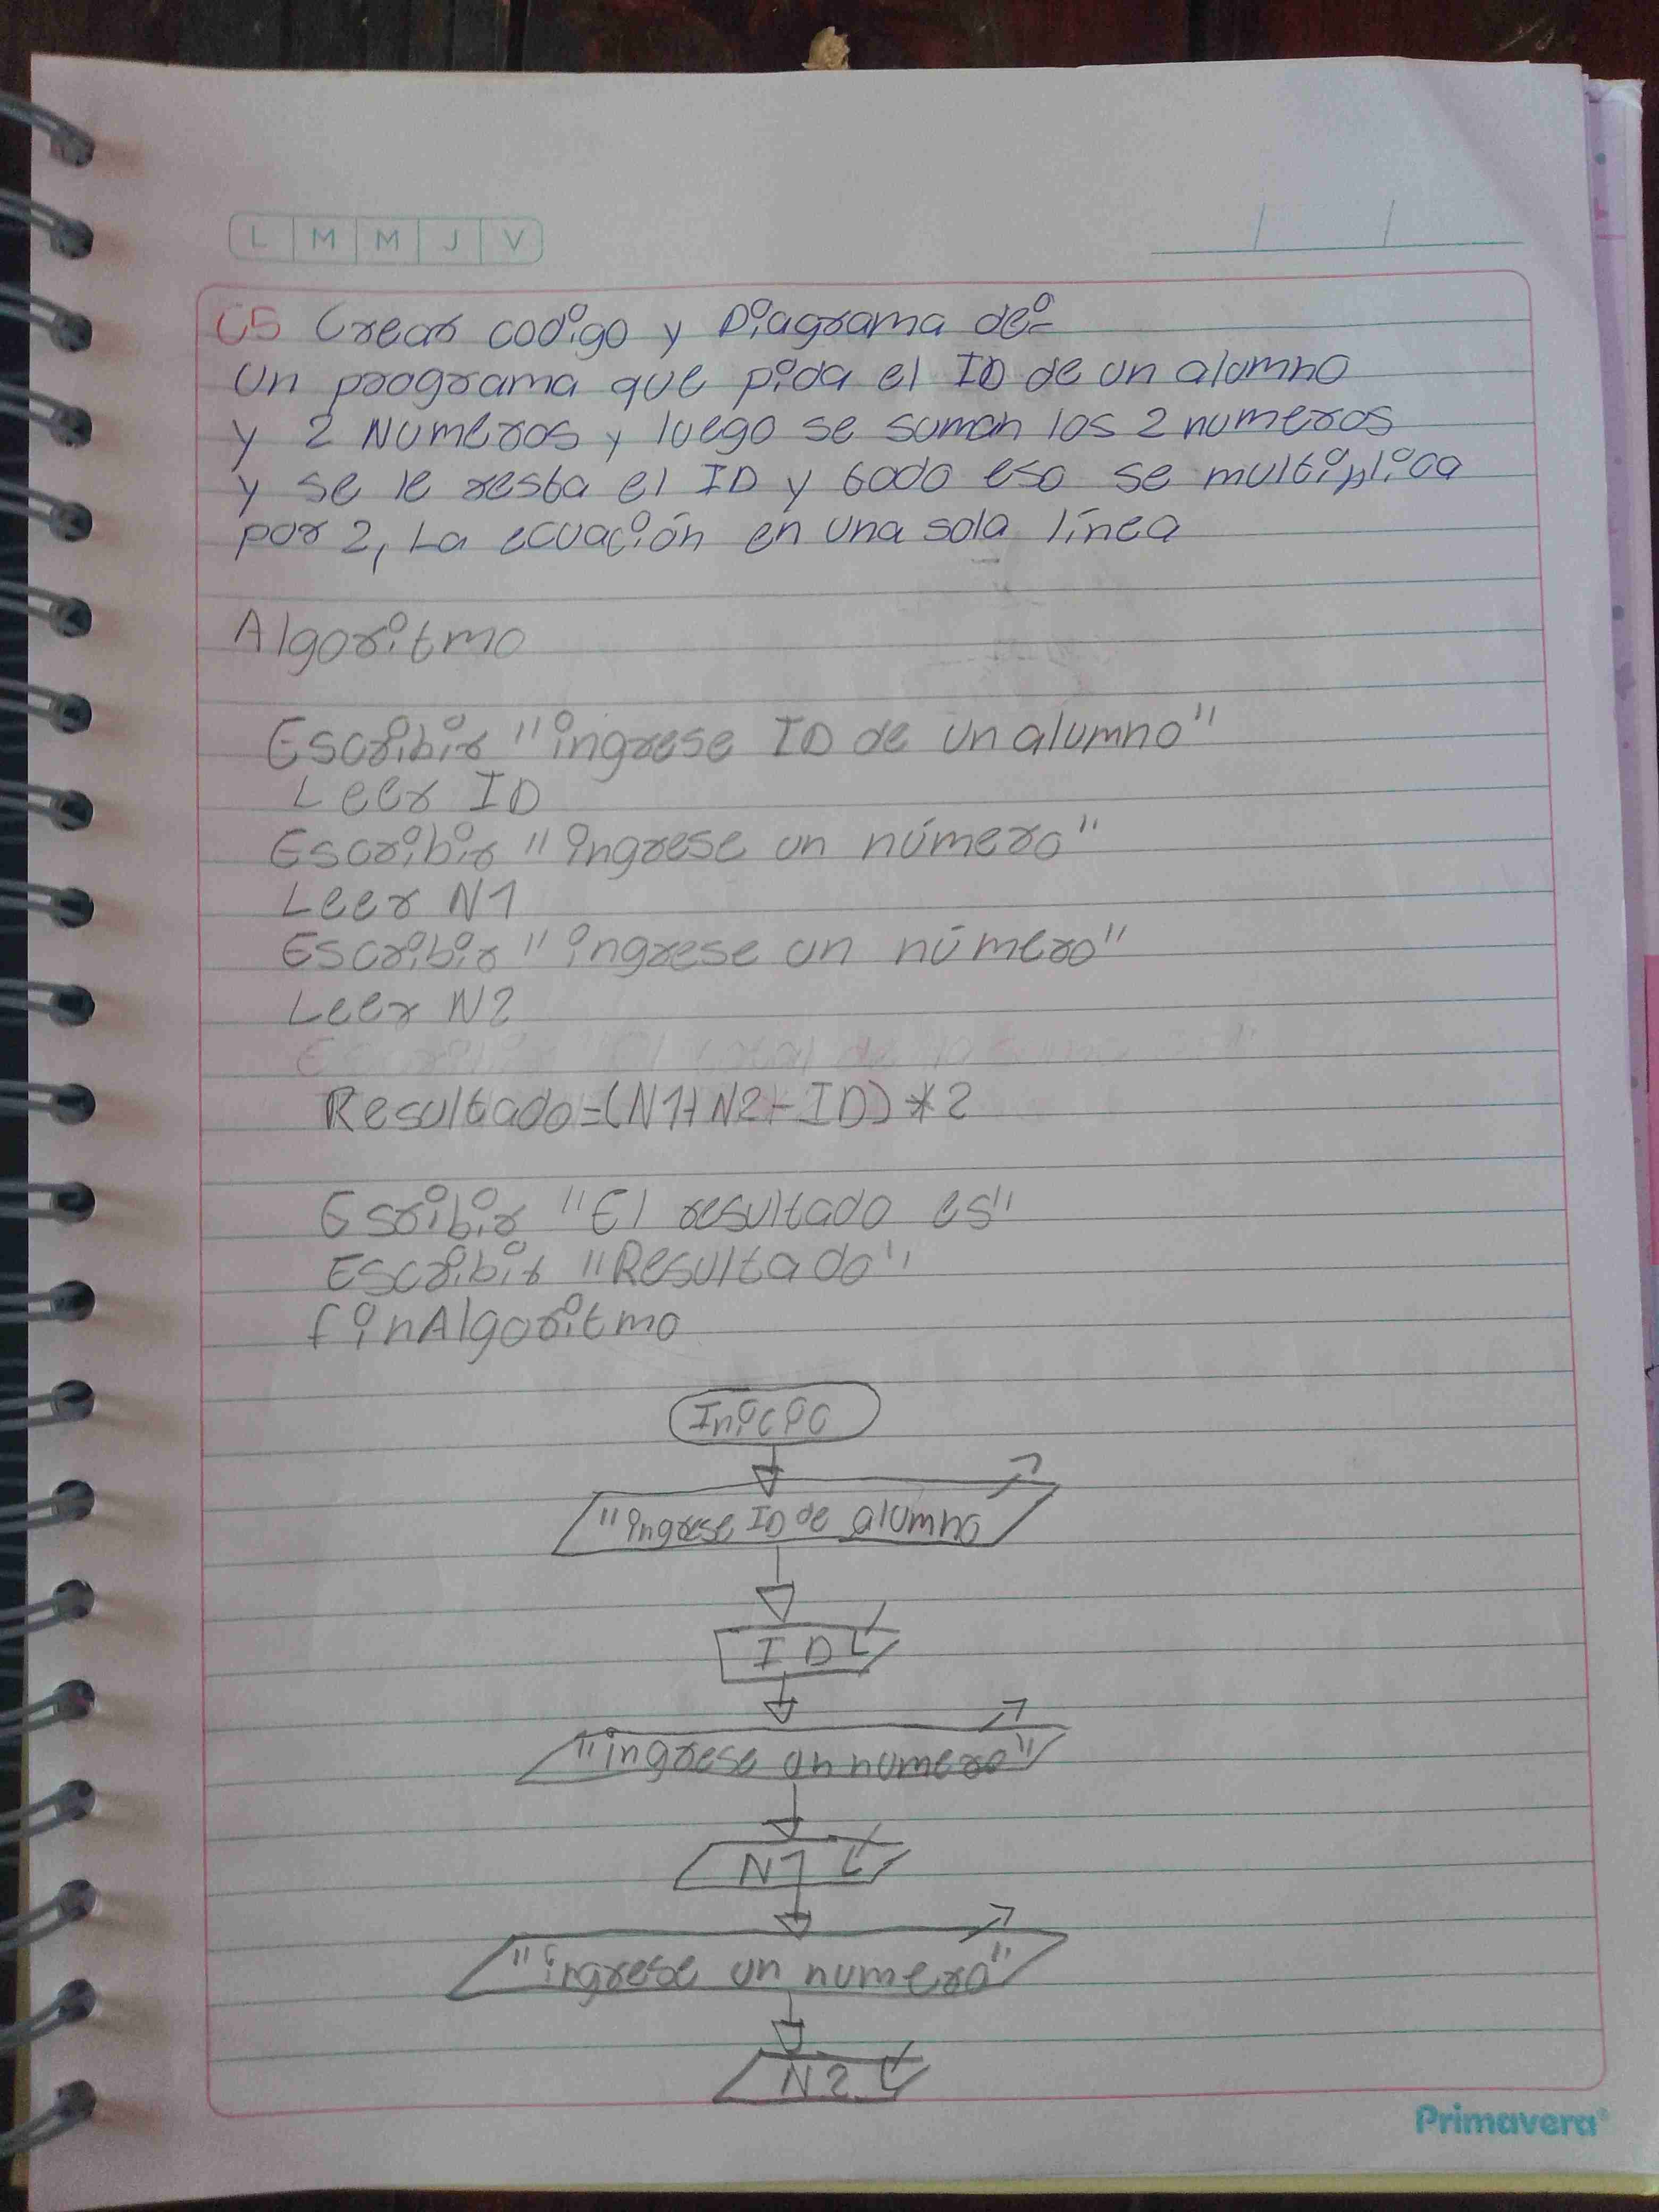 L M M J V
C5 Crear codigo y Diagrama de:
Un programa que pida el ID de un alumno
y 2 Numeros y luego se suman los 2 numeros
y se le resta el ID y todo eso se multiplica
por 2, La ecuación en una sola línea
Algoritmo
Escribir "ingrese ID de un alumno"
Leer ID
Escribir "ingrese un número"
Leer N1
Escribir "ingrese un número"
Leer N2
Resultado=(N1+N2-ID)*2
Esribir "El resultado es"
Escribir "Resultado"
finAlgoritmo
Inicio
"ingrese ID de alumno
ID
"ingrese un numero"
N1
"ingrese un numero"
N2
Primavera